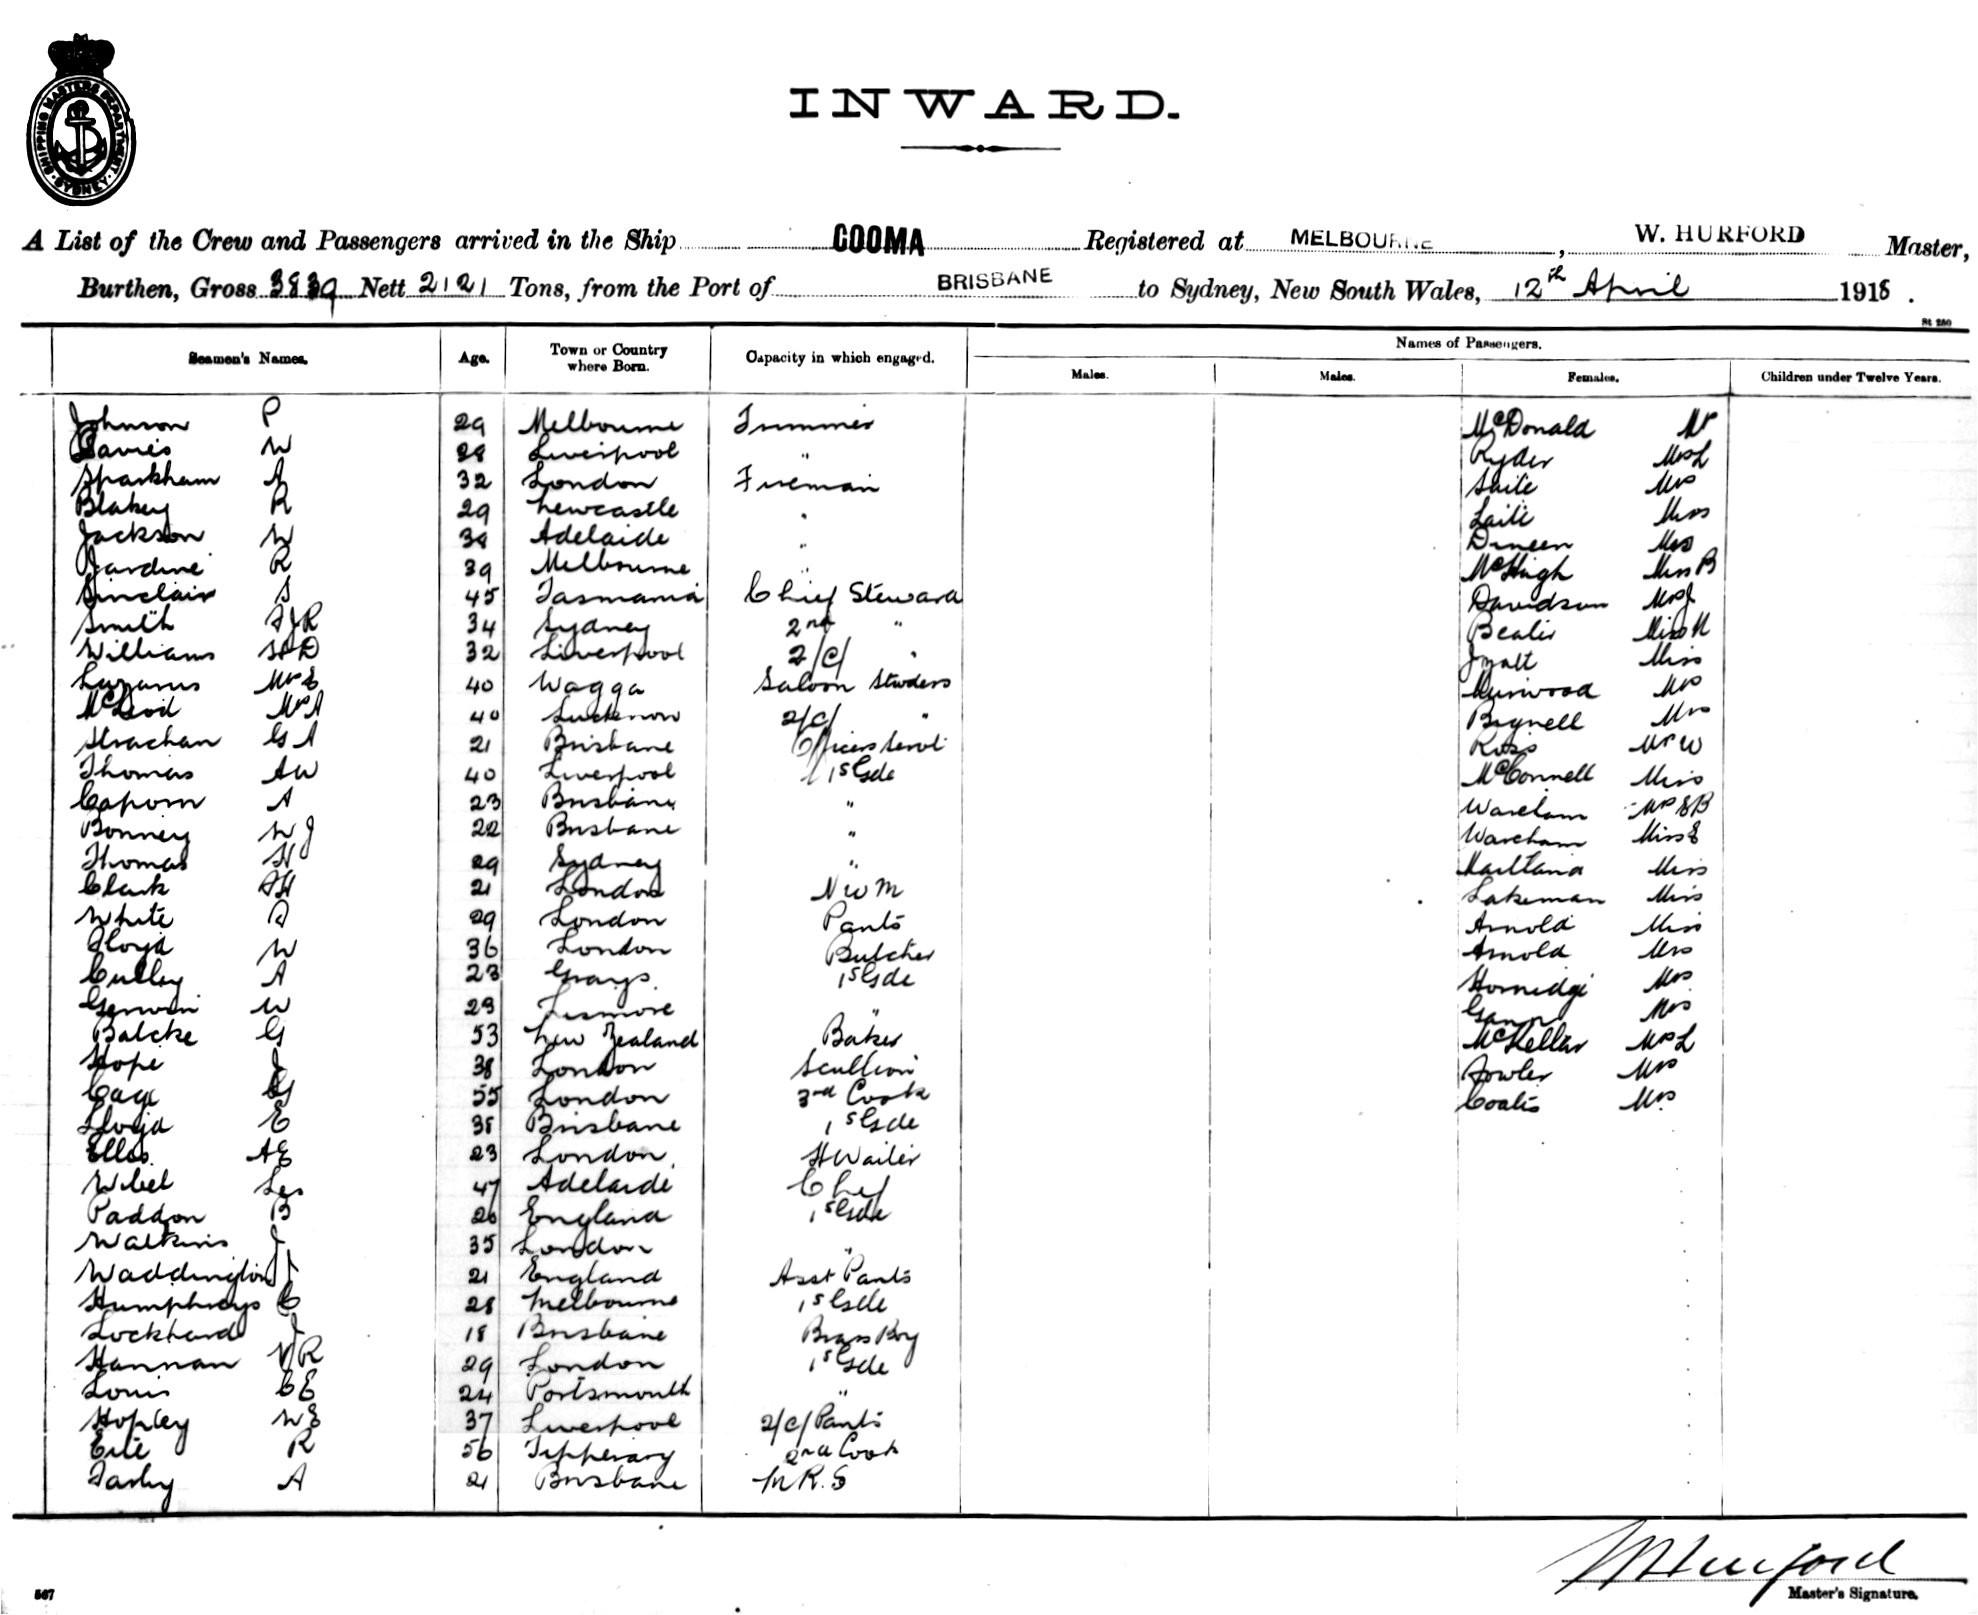 SHIPPING MASTERS DEPARTMENT. SYDNEY
INWARD.
A List of the Crew and Passengers arrived in the Ship COOMA Registered at MELBOURNE, W. HURFORD Master,
Burthen, Gross 3839 Nett 2121 Tons, from the Port of BRISBANE to Sydney, New South Wales, 12th April 1918.
St 250
Seamen's Names. Age. Town or Country where Born. Capacity in which engaged. Names of Passengers.
Males. Males. Females. Children under Twelve Years.
Johnson P 29 Melbourne Trimmer McDonald
Davies W 28 Liverpool " Ryder Mrs L
Sparkham A 32 London Fireman Mrs
Blakey R 29 Newcastle " Laite Miss
Jackson W 38 Adelaide " Dineen Mrs
Jardine R 39 Melbourne " McHugh Miss B
Sinclair S 45 Tasmania Chief Steward Davidson Mrs J
Smith F J R 34 Sydney 2nd " Miss M
Williams 32 Liverpool 2/C/ " Miss
Lazarus Mrs E 40 Wagga Saloon Stwdess Mrs
McLeod Mrs A 40 Lucknow 2/C/ " Bignell Mrs
Strachan G A 21 Brisbane Officers Servt Ross Mrs W
Thomas A W 40 Liverpool 1s Gde McConnell Miss
Caporn A 23 Brisbane " Wareham Mrs E B
Bonney W J 22 Brisbane " Wareham Miss E
Thomas H 29 Sydney " Maitland Miss
Clark F H 21 London N W M Lakeman Miss
White A 29 London Pants Arnold Miss
Floyd W 36 London Butcher Arnold Mrs
Culley A 23 Grays 1s Gde Hornidge Mrs
Gerwin W 29 Lismore " Gann Mrs
Balcke G 53 New Zealand Baker McKellar Mrs L
Hope J 38 London Scullion Fowler Mrs
Cage G 55 London 3rd Cook Coates Mrs
Lloyd E 38 Brisbane 1s Gde
Ellis A E 23 London H Waiter
Wibel Les 47 Adelaide Chef
Paddon B 26 England 1s Gde
Watkins J 35 London "
Waddington J 21 England Asst Pants
Humphreys C 28 Melbourne 1s Gde
Lockhard J 18 Brisbane Brass Boy
Hannan V R 29 London 1s Gde
Louis C E 24 Portsmouth "
Hopley W E 37 Liverpool 2/C/ Pants
R 56 Tipperary 2nd Cook
A 21 Brisbane M R S
W Hurford
Master's Signature.
567